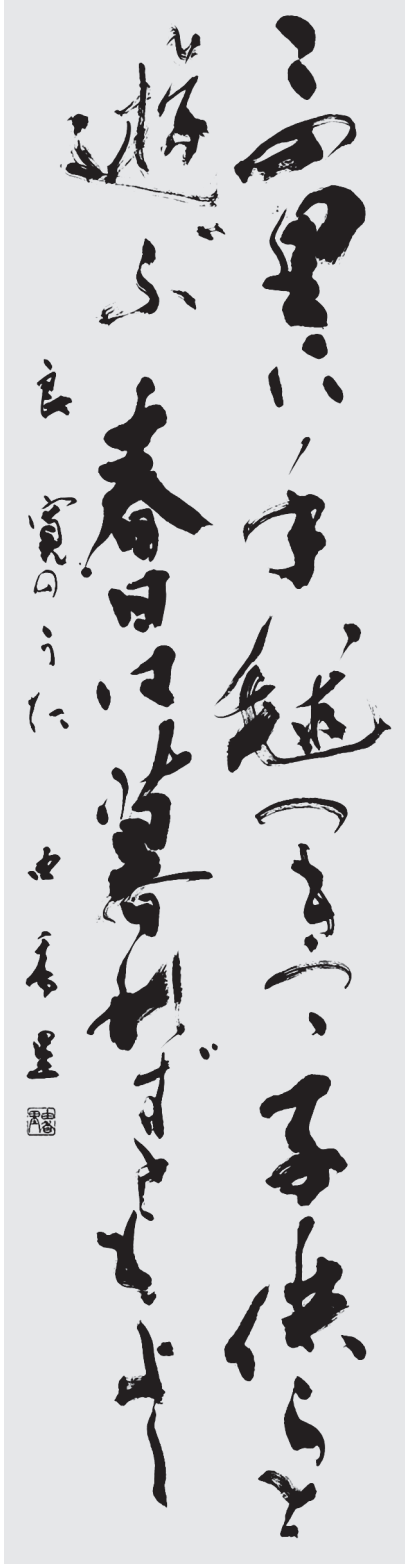 この里に手毬つきつゝ子供らと
遊ぶ春日は暮れずともよし
良寛のうた 由香里